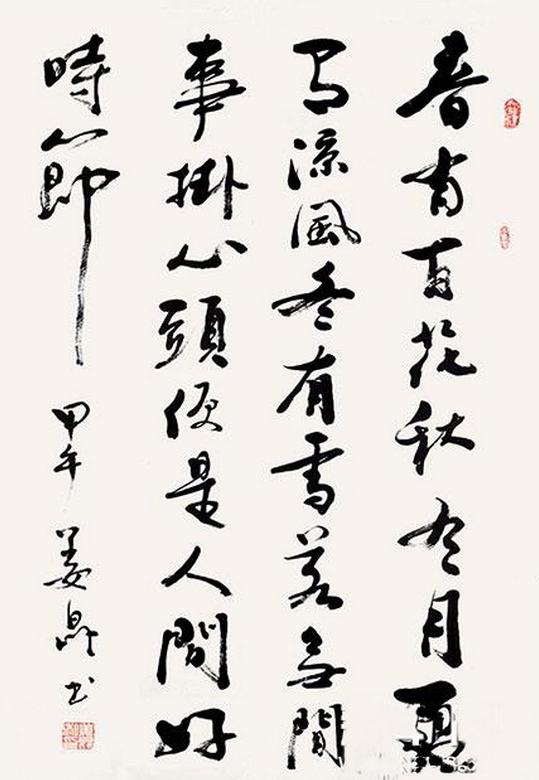 春有百花秋有月夏
有涼風冬有雪若無閒
事掛心頭便是人間好
時節
甲午姜晶书